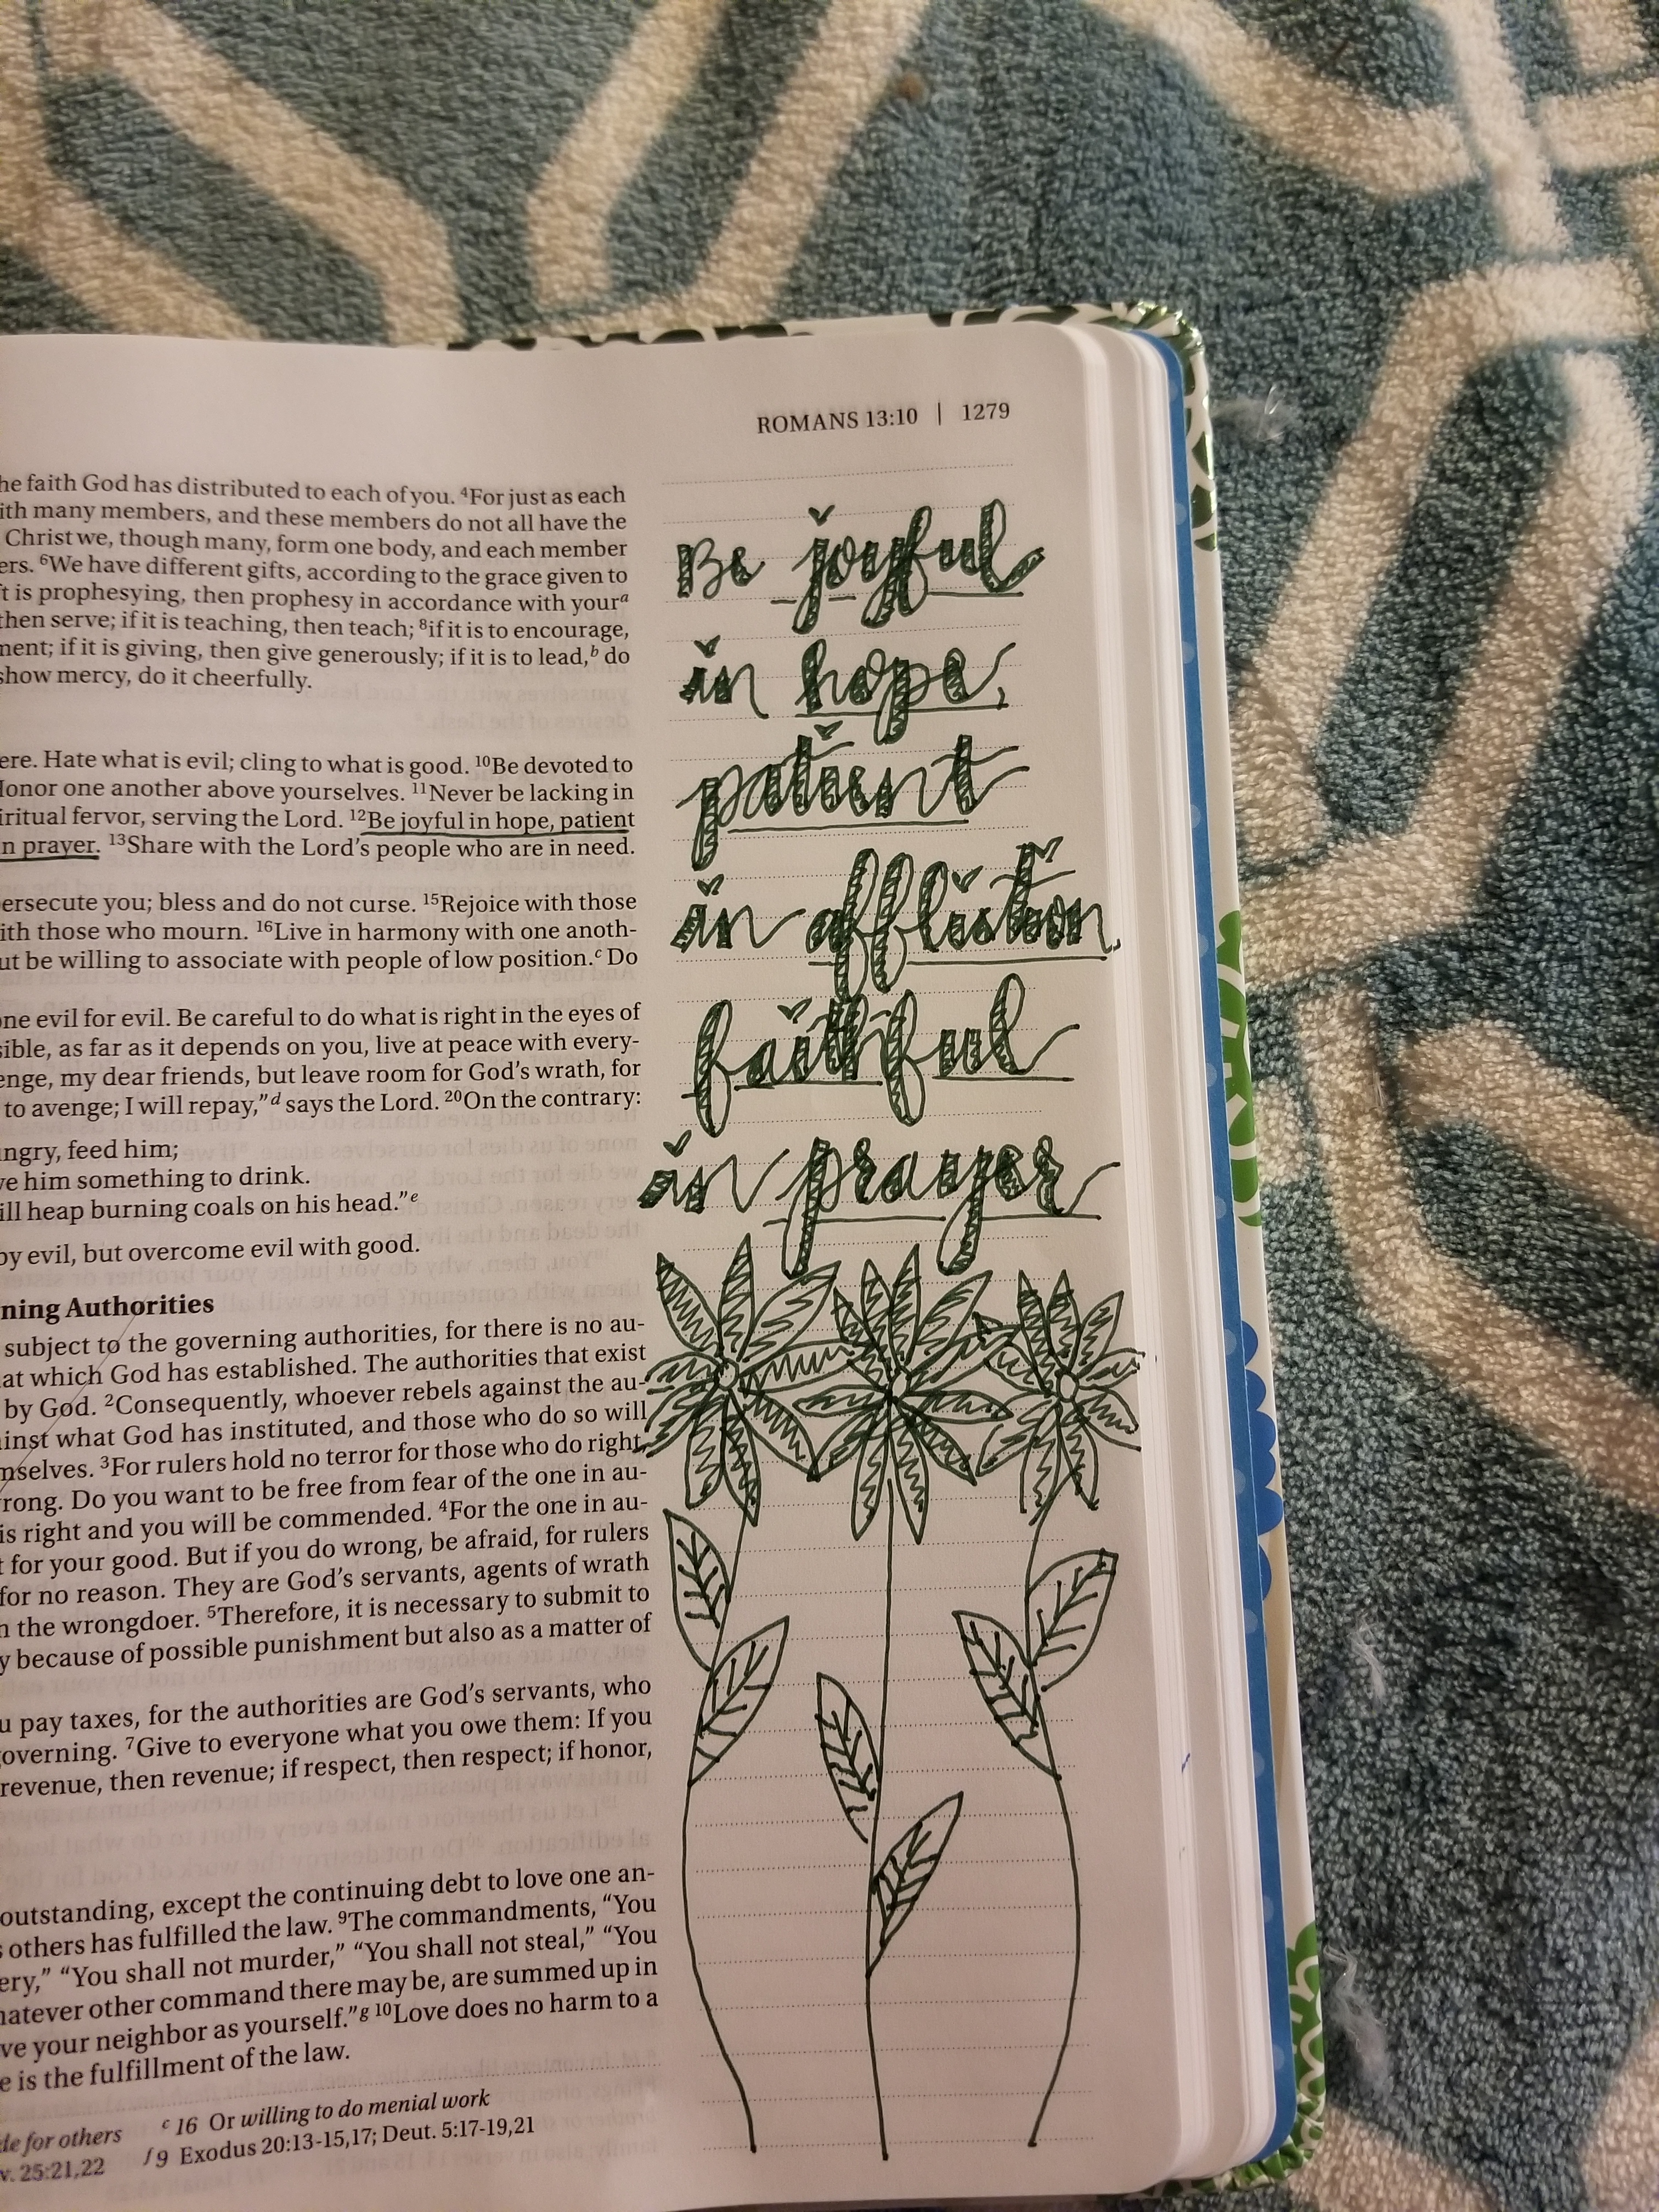 ROMANS 13:10 | 1279
he faith God has distributed to each of you. ⁴For just as each
ith many members, and these members do not all have the
Christ we, though many, form one body, and each member
ers. ⁶We have different gifts, according to the grace given to
t is prophesying, then prophesy in accordance with yourᵃ
then serve; if it is teaching, then teach; ⁸if it is to encourage,
ment; if it is giving, then give generously; if it is to lead,ᵇ do
show mercy, do it cheerfully.
ere. Hate what is evil; cling to what is good. ¹⁰Be devoted to
Honor one another above yourselves. ¹¹Never be lacking in
iritual fervor, serving the Lord. ¹²Be joyful in hope, patient
n prayer. ¹³Share with the Lord's people who are in need.
ersecute you; bless and do not curse. ¹⁵Rejoice with those
ith those who mourn. ¹⁶Live in harmony with one anoth-
ut be willing to associate with people of low position.ᶜ Do
one evil for evil. Be careful to do what is right in the eyes of
sible, as far as it depends on you, live at peace with every-
enge, my dear friends, but leave room for God's wrath, for
to avenge; I will repay,"ᵈ says the Lord. ²⁰On the contrary:
ungry, feed him;
ve him something to drink.
ill heap burning coals on his head."ᵉ
by evil, but overcome evil with good.
ning Authorities
subject to the governing authorities, for there is no au-
at which God has established. The authorities that exist
by God. ²Consequently, whoever rebels against the au-
ainst what God has instituted, and those who do so will
mselves. ³For rulers hold no terror for those who do right,
wrong. Do you want to be free from fear of the one in au-
is right and you will be commended. ⁴For the one in au-
t for your good. But if you do wrong, be afraid, for rulers
for no reason. They are God's servants, agents of wrath
n the wrongdoer. ⁵Therefore, it is necessary to submit to
y because of possible punishment but also as a matter of
u pay taxes, for the authorities are God's servants, who
governing. ⁷Give to everyone what you owe them: If you
revenue, then revenue; if respect, then respect; if honor,
outstanding, except the continuing debt to love one an-
s others has fulfilled the law. ⁹The commandments, "You
ery," "You shall not murder," "You shall not steal," "You
hatever other command there may be, are summed up in
ve your neighbor as yourself."ᵍ ¹⁰Love does no harm to a
e is the fulfillment of the law.
de for others ᶜ 16 Or willing to do menial work
v. 25:21,22 ᶠ 9 Exodus 20:13-15,17; Deut. 5:17-19,21
Be joyful
in hope,
patient
in affliction,
faithful
in prayer